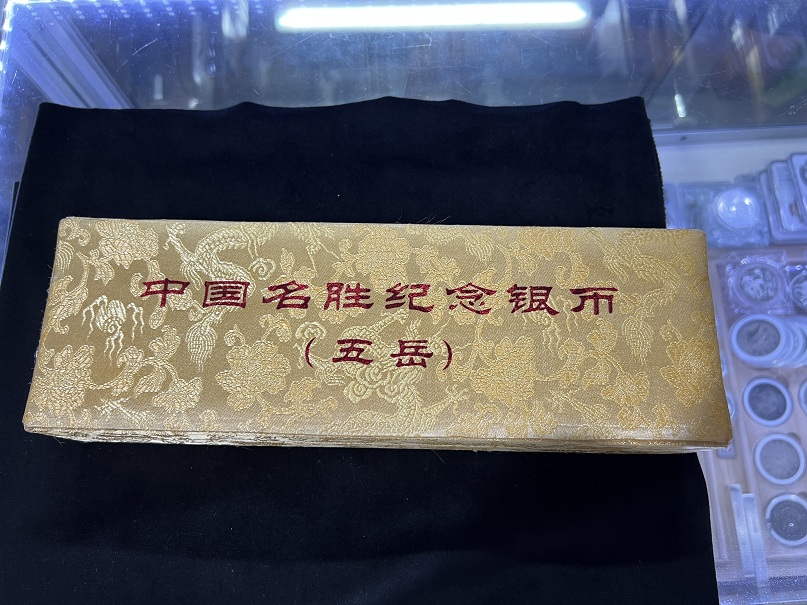 中国名胜纪念银币
(五岳)